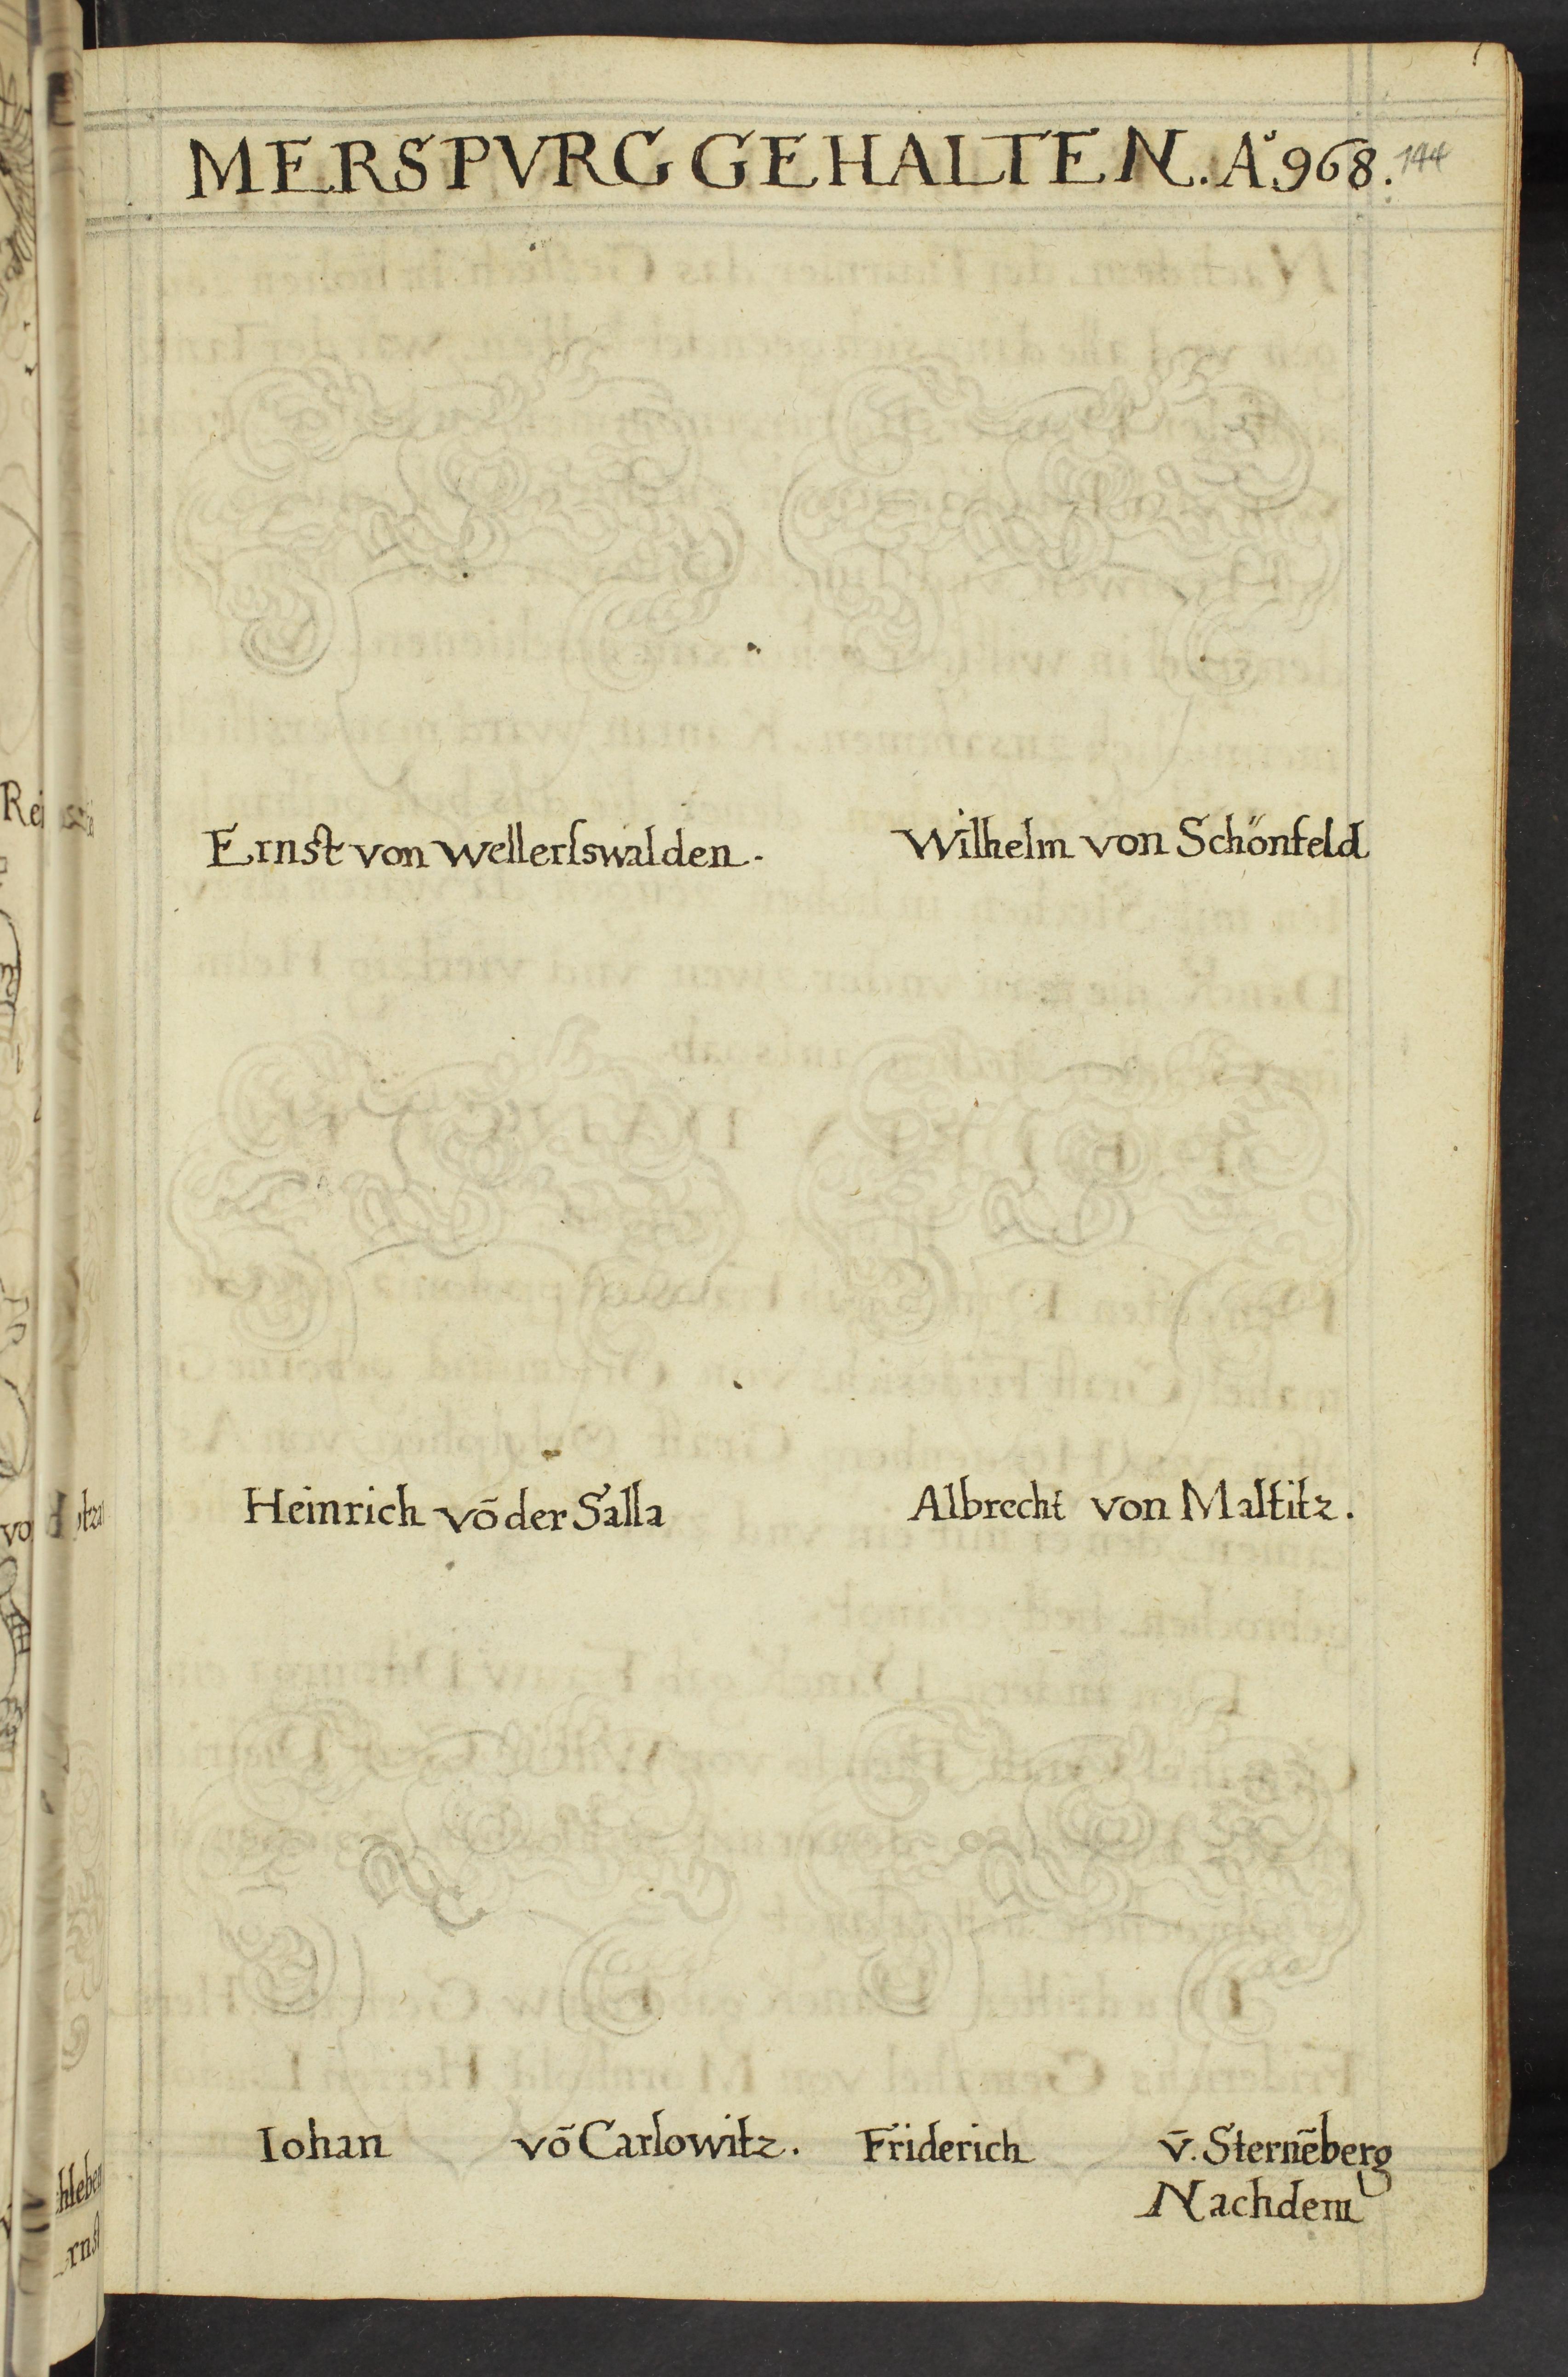 MERSPVRG GEHALTEN. A° 968.
144
Ernst von wellerſswalden.
Wilhelm von Schönfeld
Heinrich võ der Salla
Albrecht von Maltitz.
Iohan võ Carlowitz.
Friderich v̄. Sternẽberg
Nachdem